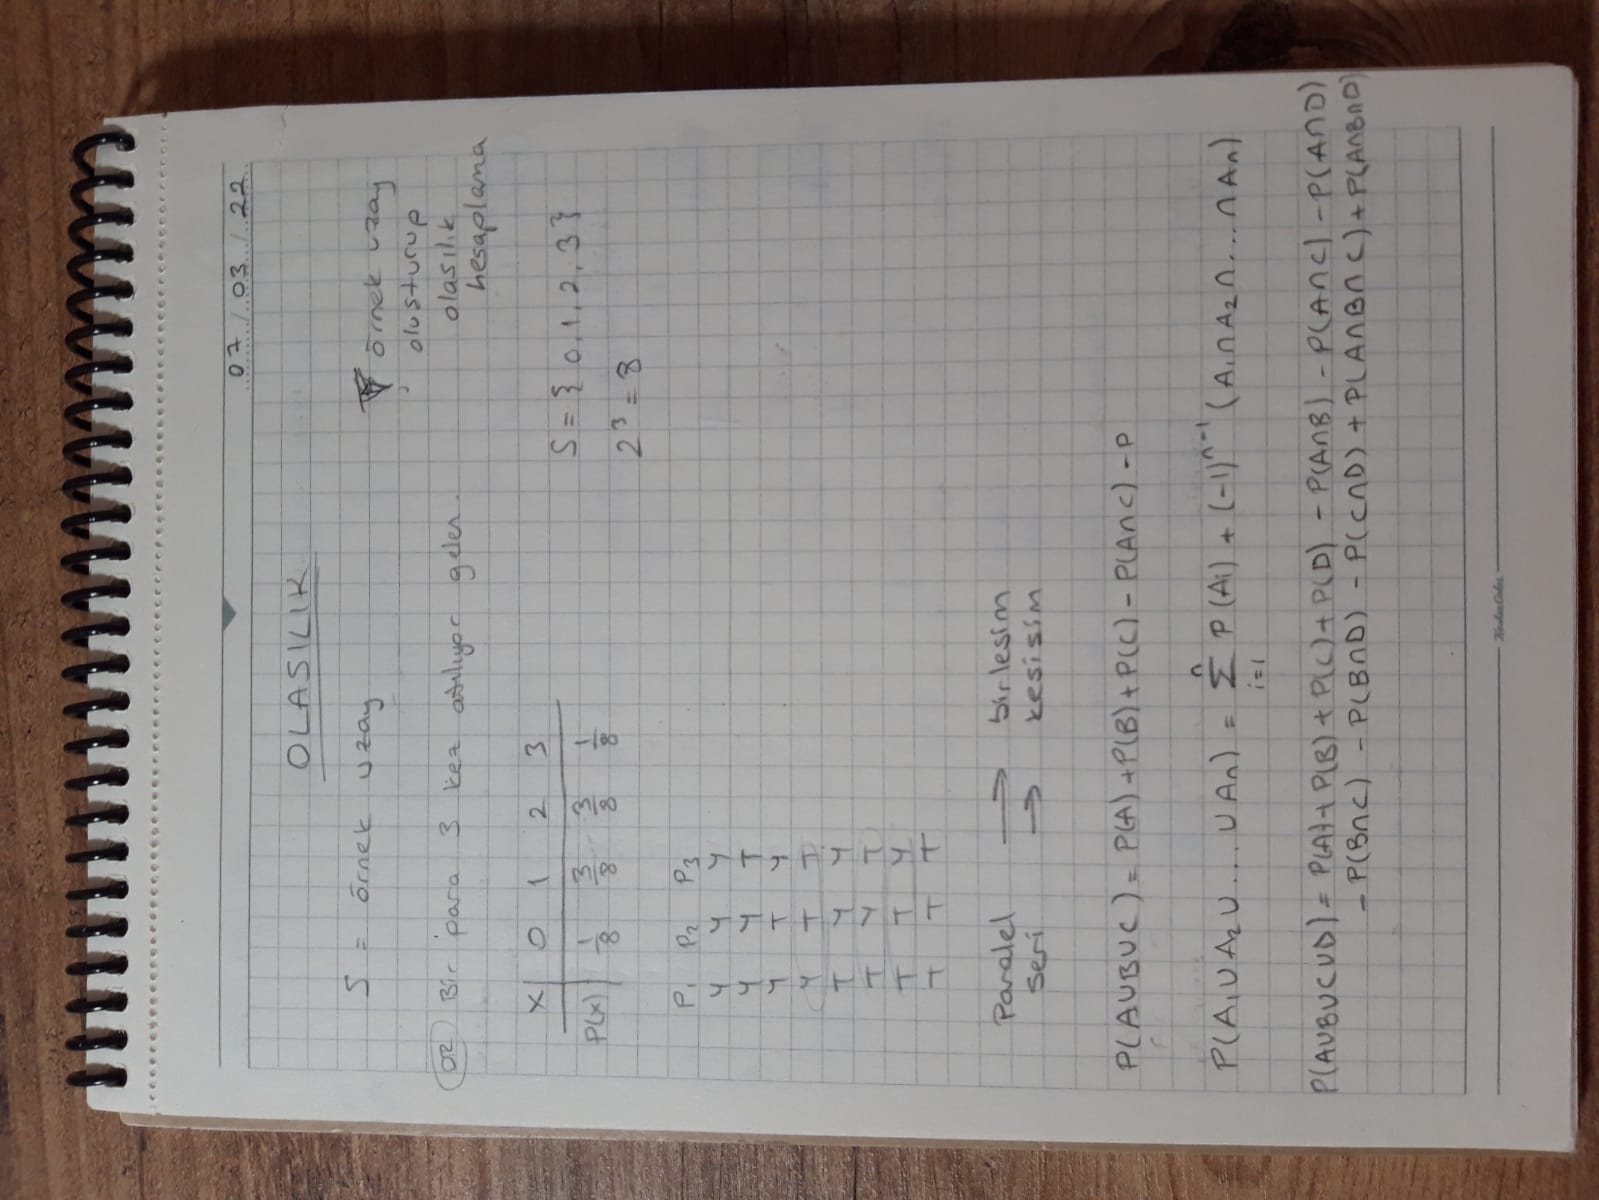 07/03/22
OLASILIK
S = örnek uzay
örnek uzay
oluşturup
olasılık
hesaplama
ÖR Bir para 3 kez atılıyor gelen.
X 0 1 2 3
P(x) 1/8 3/8 3/8 1/8
S = { 0, 1, 2, 3 }
2³ = 8
P₁ P₂ P₃
Y Y Y
Y Y T
Y T Y
Y T T
T Y Y
T Y T
T T Y
T T T
Paralel → birlesim
seri → kesisim
P(AUBUC) = P(A)+P(B)+P(C) - P(A∩C) - P
P(A₁UA₂U....UAn) = ∑ⁿᵢ₌₁ P(Ai) + (-1)ⁿ⁻¹ (A₁∩A₂∩...∩An)
P(AUBUCUD) = P(A)+P(B)+P(C)+P(D) - P(A∩B) - P(A∩C) - P(A∩D)
- P(B∩C) - P(B∩D) - P(C∩D) + P(A∩B∩C) + P(A∩B∩D)